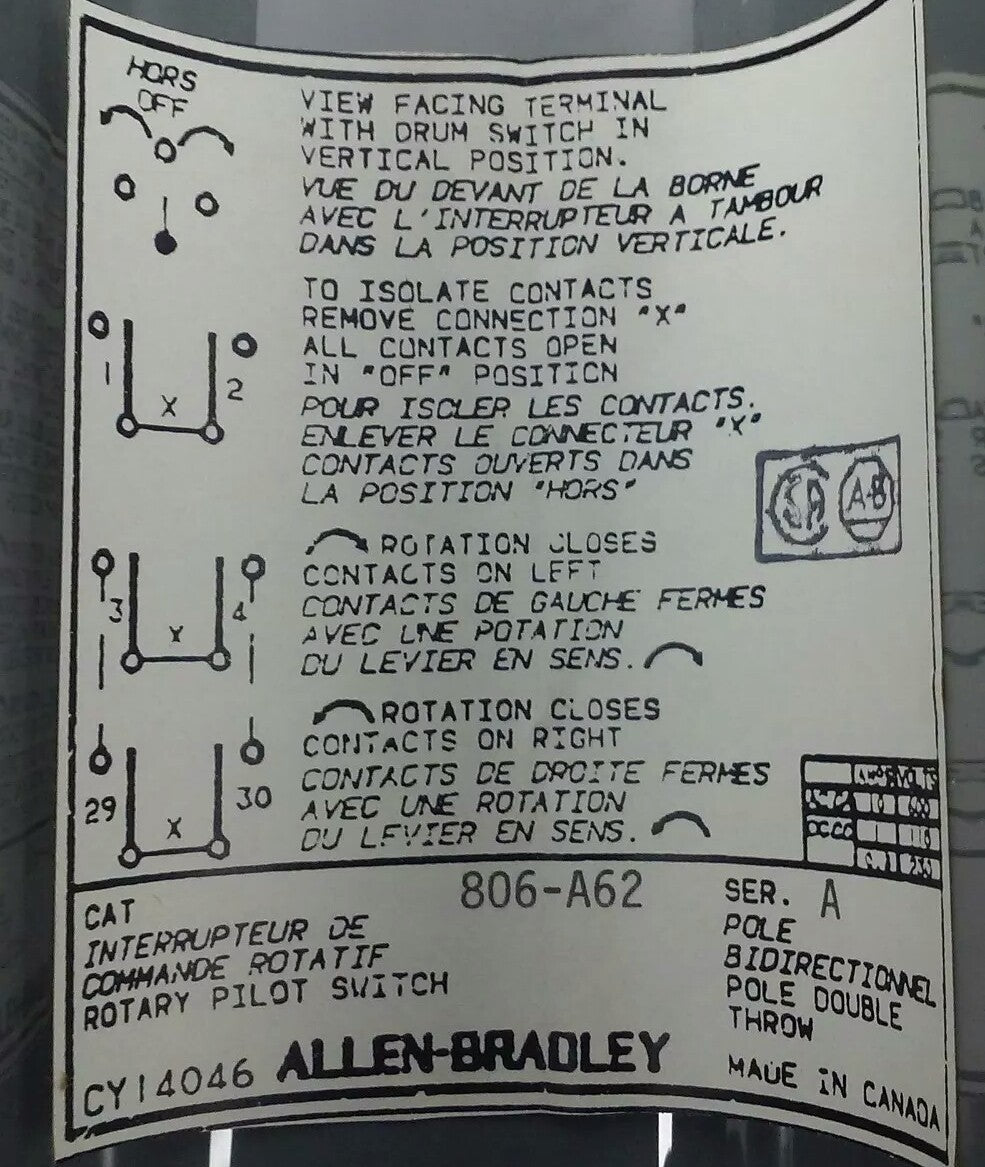 HORS
OFF
VIEW FACING TERMINAL
WITH DRUM SWITCH IN
VERTICAL POSITION.
VUE DU DEVANT DE LA BORNE
AVEC L'INTERRUPTEUR A TAMBOUR
DANS LA POSITION VERTICALE.
1
2
X
TO ISOLATE CONTACTS
REMOVE CONNECTION "X"
ALL CONTACTS OPEN
IN "OFF" POSITION
POUR ISOLER LES CONTACTS.
ENLEVER LE CONNECTEUR "X"
CONTACTS OUVERTS DANS
LA POSITION "HORS"
SA A-B
3
4
X
ROTATION CLOSES
CONTACTS ON LEFT
CONTACTS DE GAUCHE FERMES
AVEC UNE ROTATION
DU LEVIER EN SENS.
29
30
X
ROTATION CLOSES
CONTACTS ON RIGHT
CONTACTS DE DROITE FERMES
AVEC UNE ROTATION
DU LEVIER EN SENS.
CAT
806-A62
SER. A
INTERRUPTEUR DE
COMMANDE ROTATIF
ROTARY PILOT SWITCH
POLE
BIDIRECTIONNEL
POLE DOUBLE
THROW
CY14046
ALLEN-BRADLEY
MADE IN CANADA